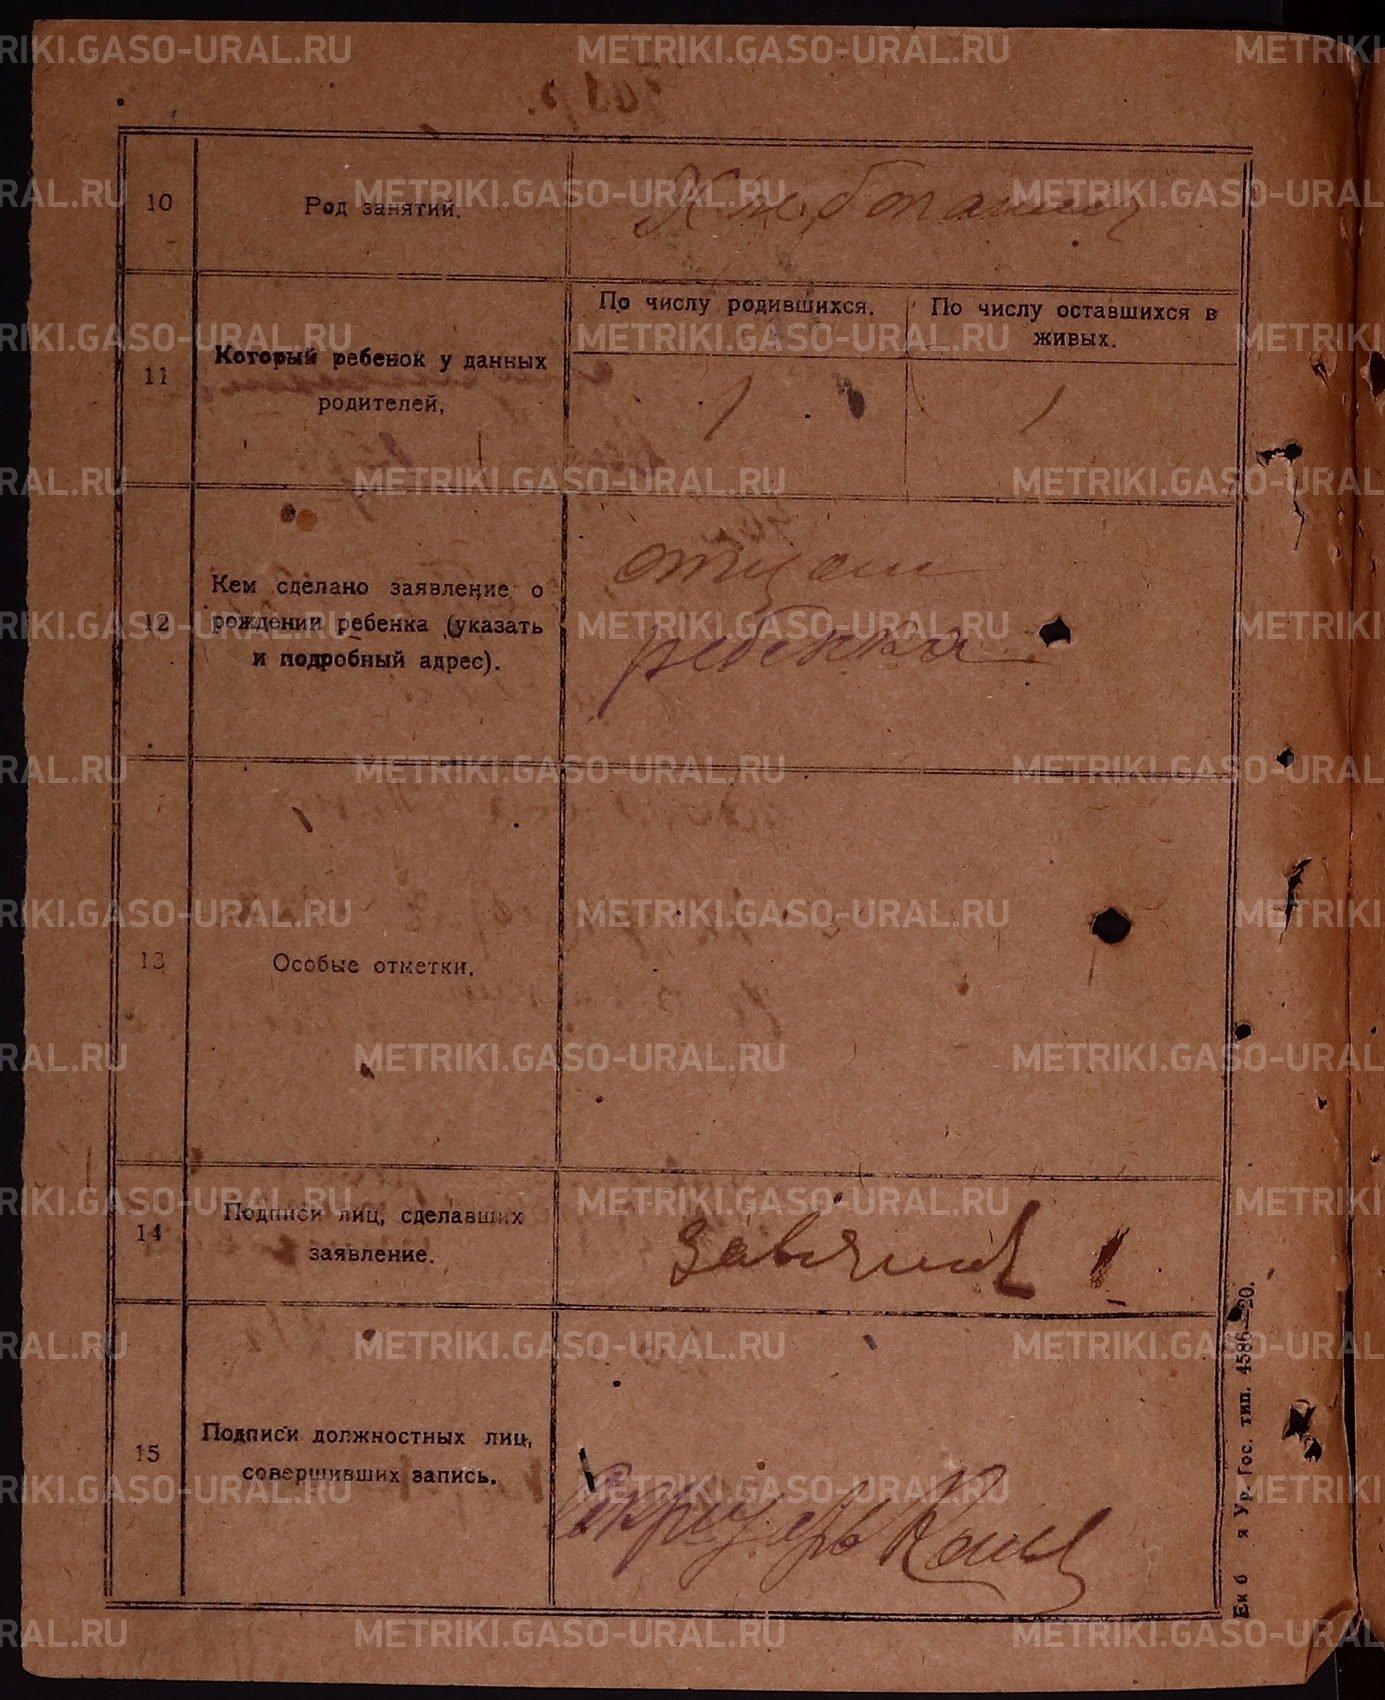 10
Род занятий.
Хлебопашец
11
Который ребенок у данных
родителей,
По числу родившихся.
По числу оставшихся в
живых.
1
1
12
Кем сделано заявление о
рождении ребенка (указать
и подробный адрес).
отцом
ребенка
13
Особые отметки.
14
Подписи лиц, сделавших
заявление.
15
Подписи должностных лиц,
совершивших запись.
Секретарь
Ур. Гос. тип. 4586—20.
METRIKI.GASO-URAL.RU